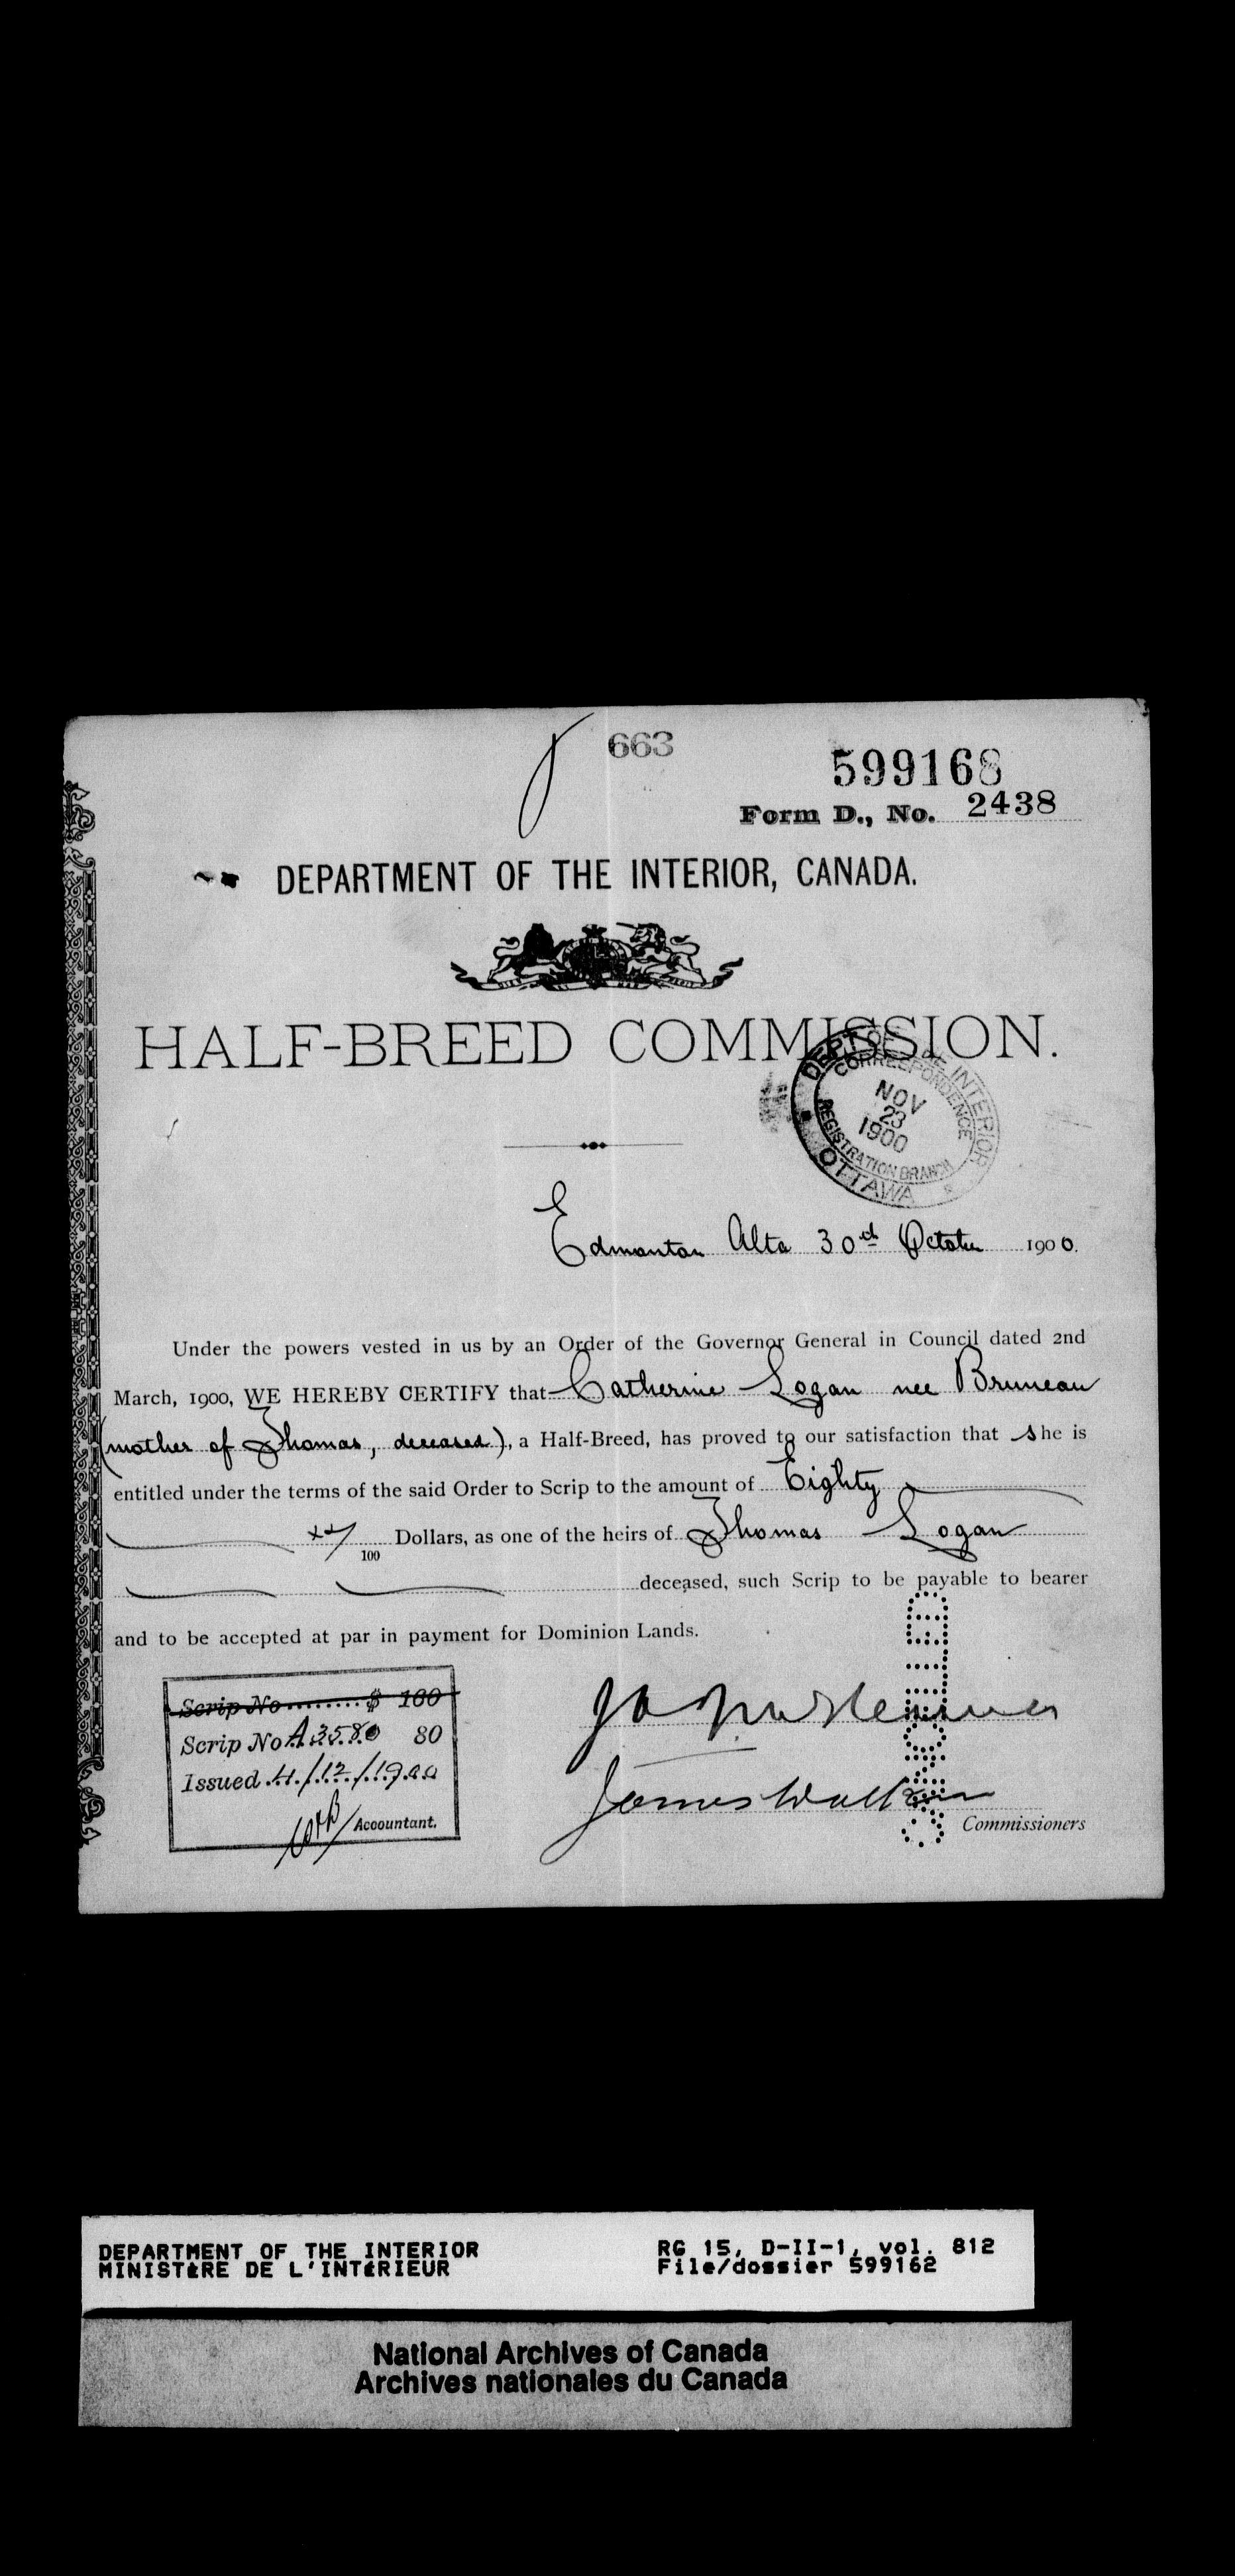 663
599168
Form D., No. 2438
DEPARTMENT OF THE INTERIOR, CANADA.
HALF-BREED COMMISSION.
DEPT. OF THE INTERIOR
CORRESPONDENCE
NOV
23
1900
REGISTRATION BRANCH
OTTAWA
Edmonton Alta 30th October 1900.
Under the powers vested in us by an Order of the Governor General in Council dated 2nd
March, 1900, WE HEREBY CERTIFY that Catherine Logan nee Bruneau
(mother of Thomas, deceased), a Half-Breed, has proved to our satisfaction that she is
entitled under the terms of the said Order to Scrip to the amount of Eighty
xx/100 Dollars, as one of the heirs of Thomas Logan
deceased, such Scrip to be payable to bearer
and to be accepted at par in payment for Dominion Lands.
Scrip No ........ $ 160
Scrip No A3580 80
Issued 4/12/1900
Accountant.
James Walker
Commissioners
DEPARTMENT OF THE INTERIOR RG 15, D-II-1, vol. 812
MINISTÈRE DE L'INTÉRIEUR File/dossier 599162
National Archives of Canada
Archives nationales du Canada